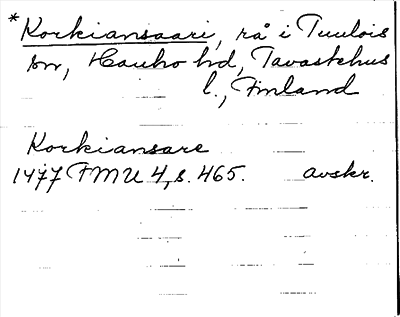 *Korkiansaari, rå i Tuulois
sn, Hauho hd, Tavastehus
l., Finland
Korkiansare
1477 FMU 4, s. 465. avskr.